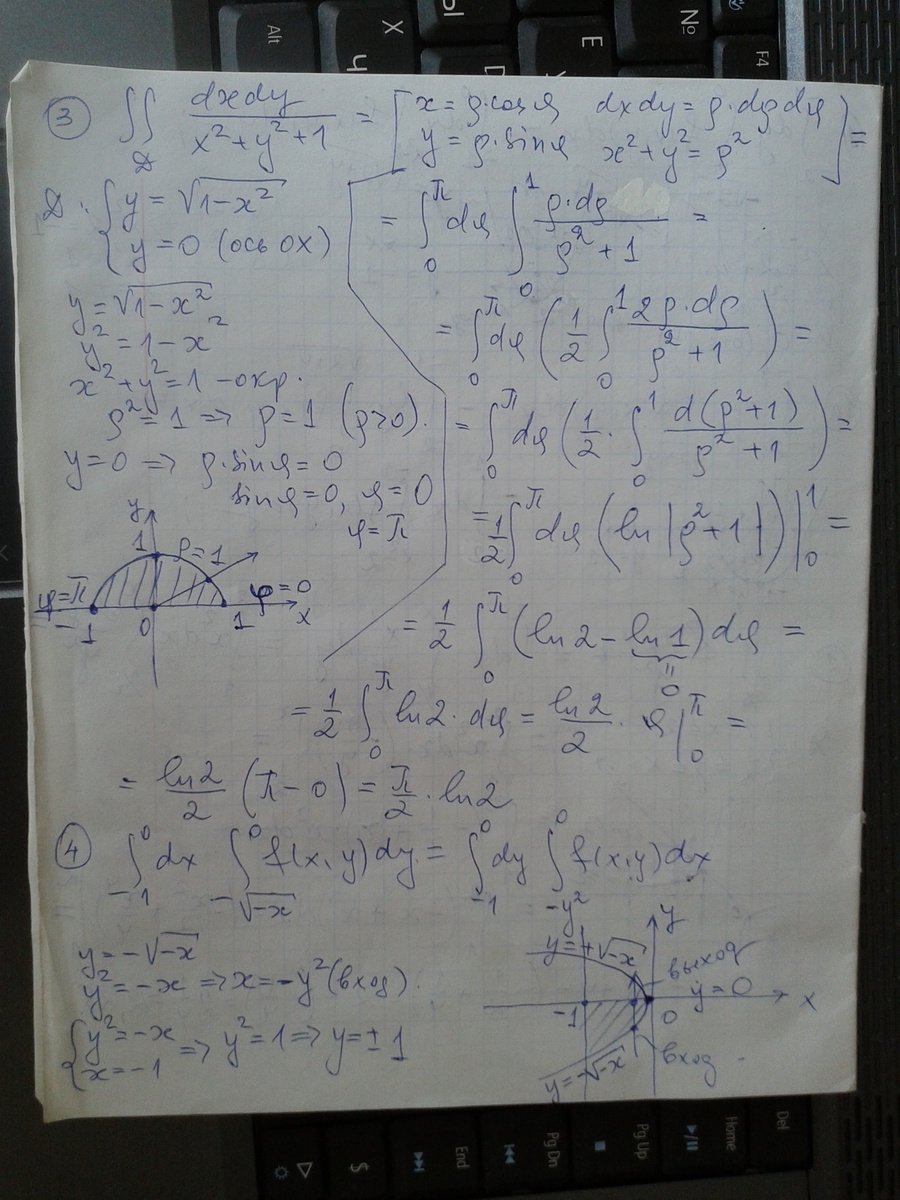 Alt
X
Ч
Ы
Е
№
F4
③ ∬_D dxdy/(x²+y²+1) = [x = ρ·cosφ dxdy = ρ·dρdφ
y = ρ·sinφ x²+y² = ρ²] =
D: { y = √(1-x²)
y = 0 (ось OX)
y = √(1-x²)
y² = 1-x²
x²+y² = 1 - окр.
ρ² = 1 => ρ = 1 (ρ>0).
y = 0 => ρ·sinφ = 0
sinφ = 0, φ = 0
φ = π
y
1
ρ = 1
φ = π
φ = 0
-1
0
1
x
= ∫₀^π dφ ∫₀^1 ρ·dρ/(ρ²+1) =
= ∫₀^π dφ (1/2 ∫₀^1 2ρ·dρ/(ρ²+1)) =
= ∫₀^π dφ (1/2 · ∫₀^1 d(ρ²+1)/(ρ²+1)) =
= 1/2 ∫₀^π dφ (ln|ρ²+1|)|₀^1 =
= 1/2 ∫₀^π (ln2 - ln1) dφ =
=
0
= 1/2 ∫₀^π ln2·dφ = ln2/2 · φ|₀^π =
= ln2/2 (π-0) = π/2 · ln2
④ ∫₋₁^0 dx ∫_{-√(-x)}^0 f(x,y)dy = ∫₋₁^0 dy ∫_{-y²}^0 f(x,y)dx
y = -√(-x)
y² = -x => x = -y² (вход).
{ y² = -x
x = -1 => y² = 1 => y = ±1
y
y = +√(-x)
выход
y = 0
x
-1
0
y = -√(-x)
вход
$
End
Pg Dn
Pg Up
Home
Del